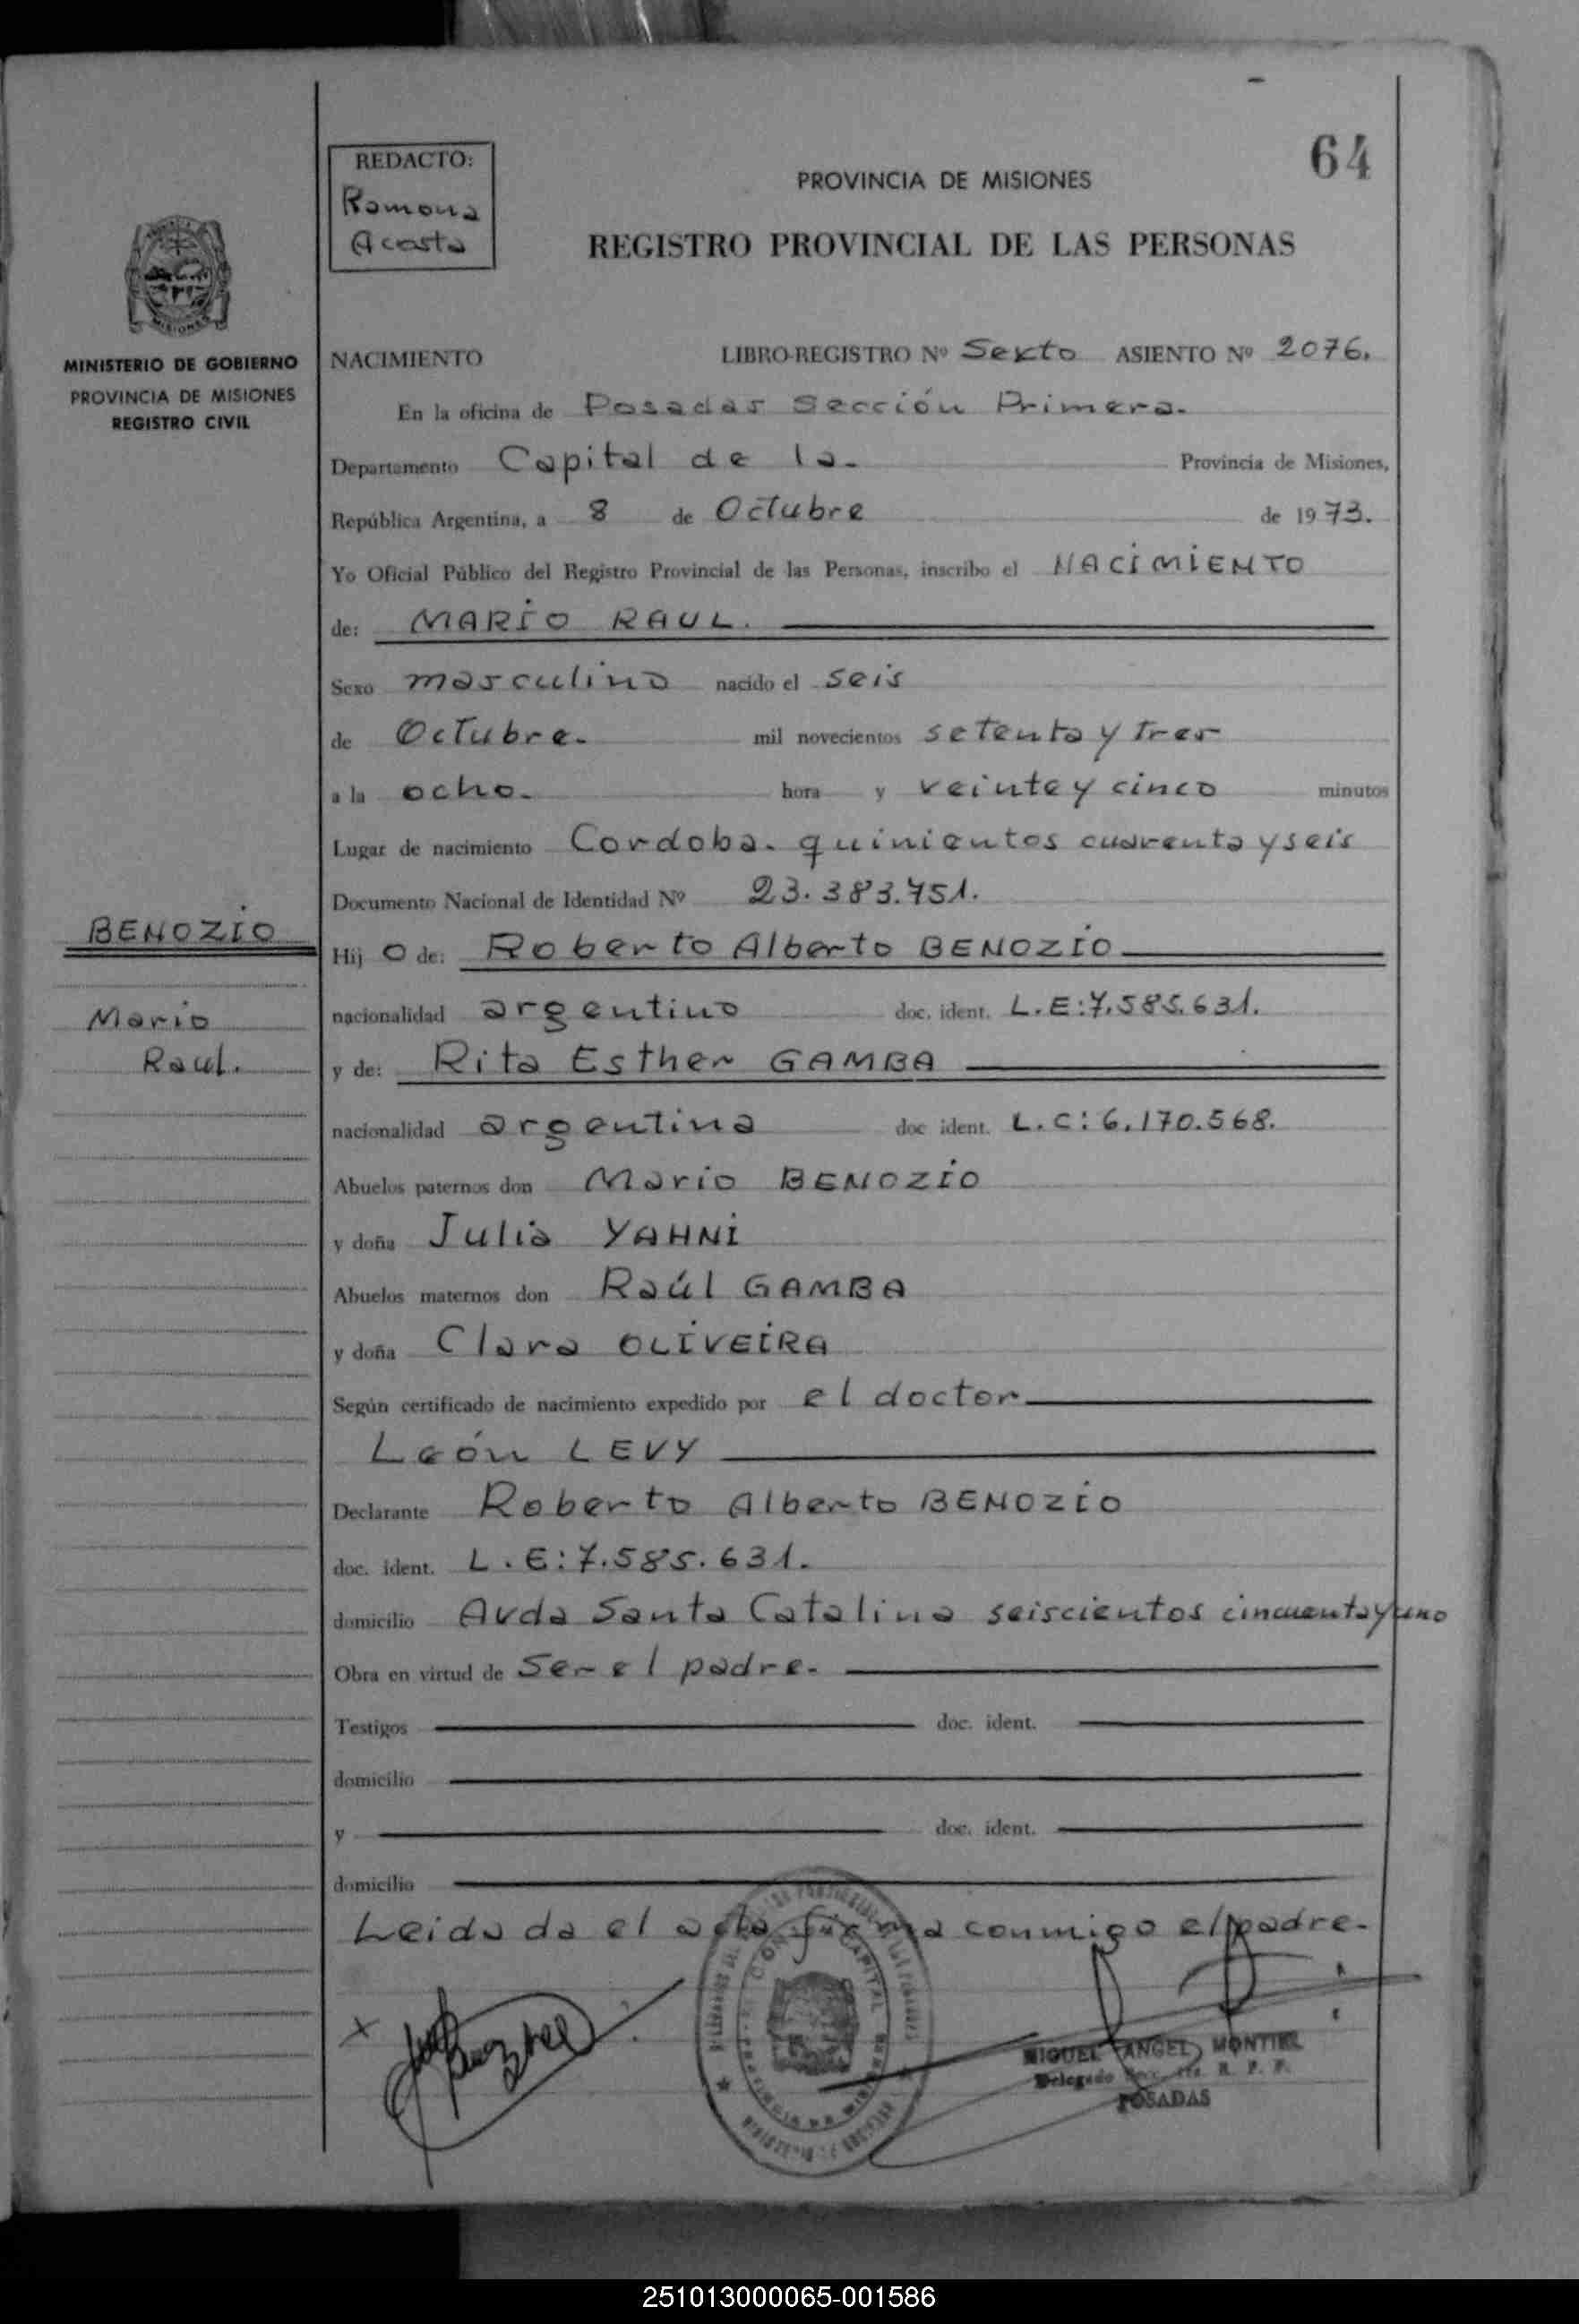 64
REDACTO:
Ramona
Acosta
PROVINCIA DE MISIONES
REGISTRO PROVINCIAL DE LAS PERSONAS
MISIONES
MINISTERIO DE GOBIERNO
PROVINCIA DE MISIONES
REGISTRO CIVIL
NACIMIENTO LIBRO-REGISTRO Nº Sexto ASIENTO Nº 2076.
En la oficina de Posadas Sección Primera.
Departamento Capital de la. Provincia de Misiones,
República Argentina, a 8 de Octubre de 1973.
Yo Oficial Público del Registro Provincial de las Personas, inscribo el NACIMIENTO
de: MARIO RAUL.
Sexo masculino nacido el seis
de Octubre. mil novecientos setenta y tres
a la ocho. hora y veinte y cinco minutos
Lugar de nacimiento Cordoba. quinientos cuarenta y seis
Documento Nacional de Identidad Nº 23.383.751.
BENOZIO
Hij o de: Roberto Alberto BENOZIO
Mario
Raul.
nacionalidad argentino doc. ident. L.E:7.585.631.
y de: Rita Esther GAMBA
nacionalidad argentina doc ident. L.C:6.170.568.
Abuelos paternos don Mario BENOZIO
y doña Julia YAHNI
Abuelos maternos don Raúl GAMBA
y doña Clara OLIVEIRA
Según certificado de nacimiento expedido por el doctor
León LEVY
Declarante Roberto Alberto BENOZIO
doc. ident. L.E:7.585.631.
domicilio Avda Santa Catalina seiscientos cincuenta y uno
Obra en virtud de Ser el padre.
Testigos doc. ident.
domicilio
y doc. ident.
domicilio
Leida da el acta firma conmigo el padre.
MIGUEL ANGEL MONTIEL
Delegado R. P. P.
POSADAS
251013000065-001586